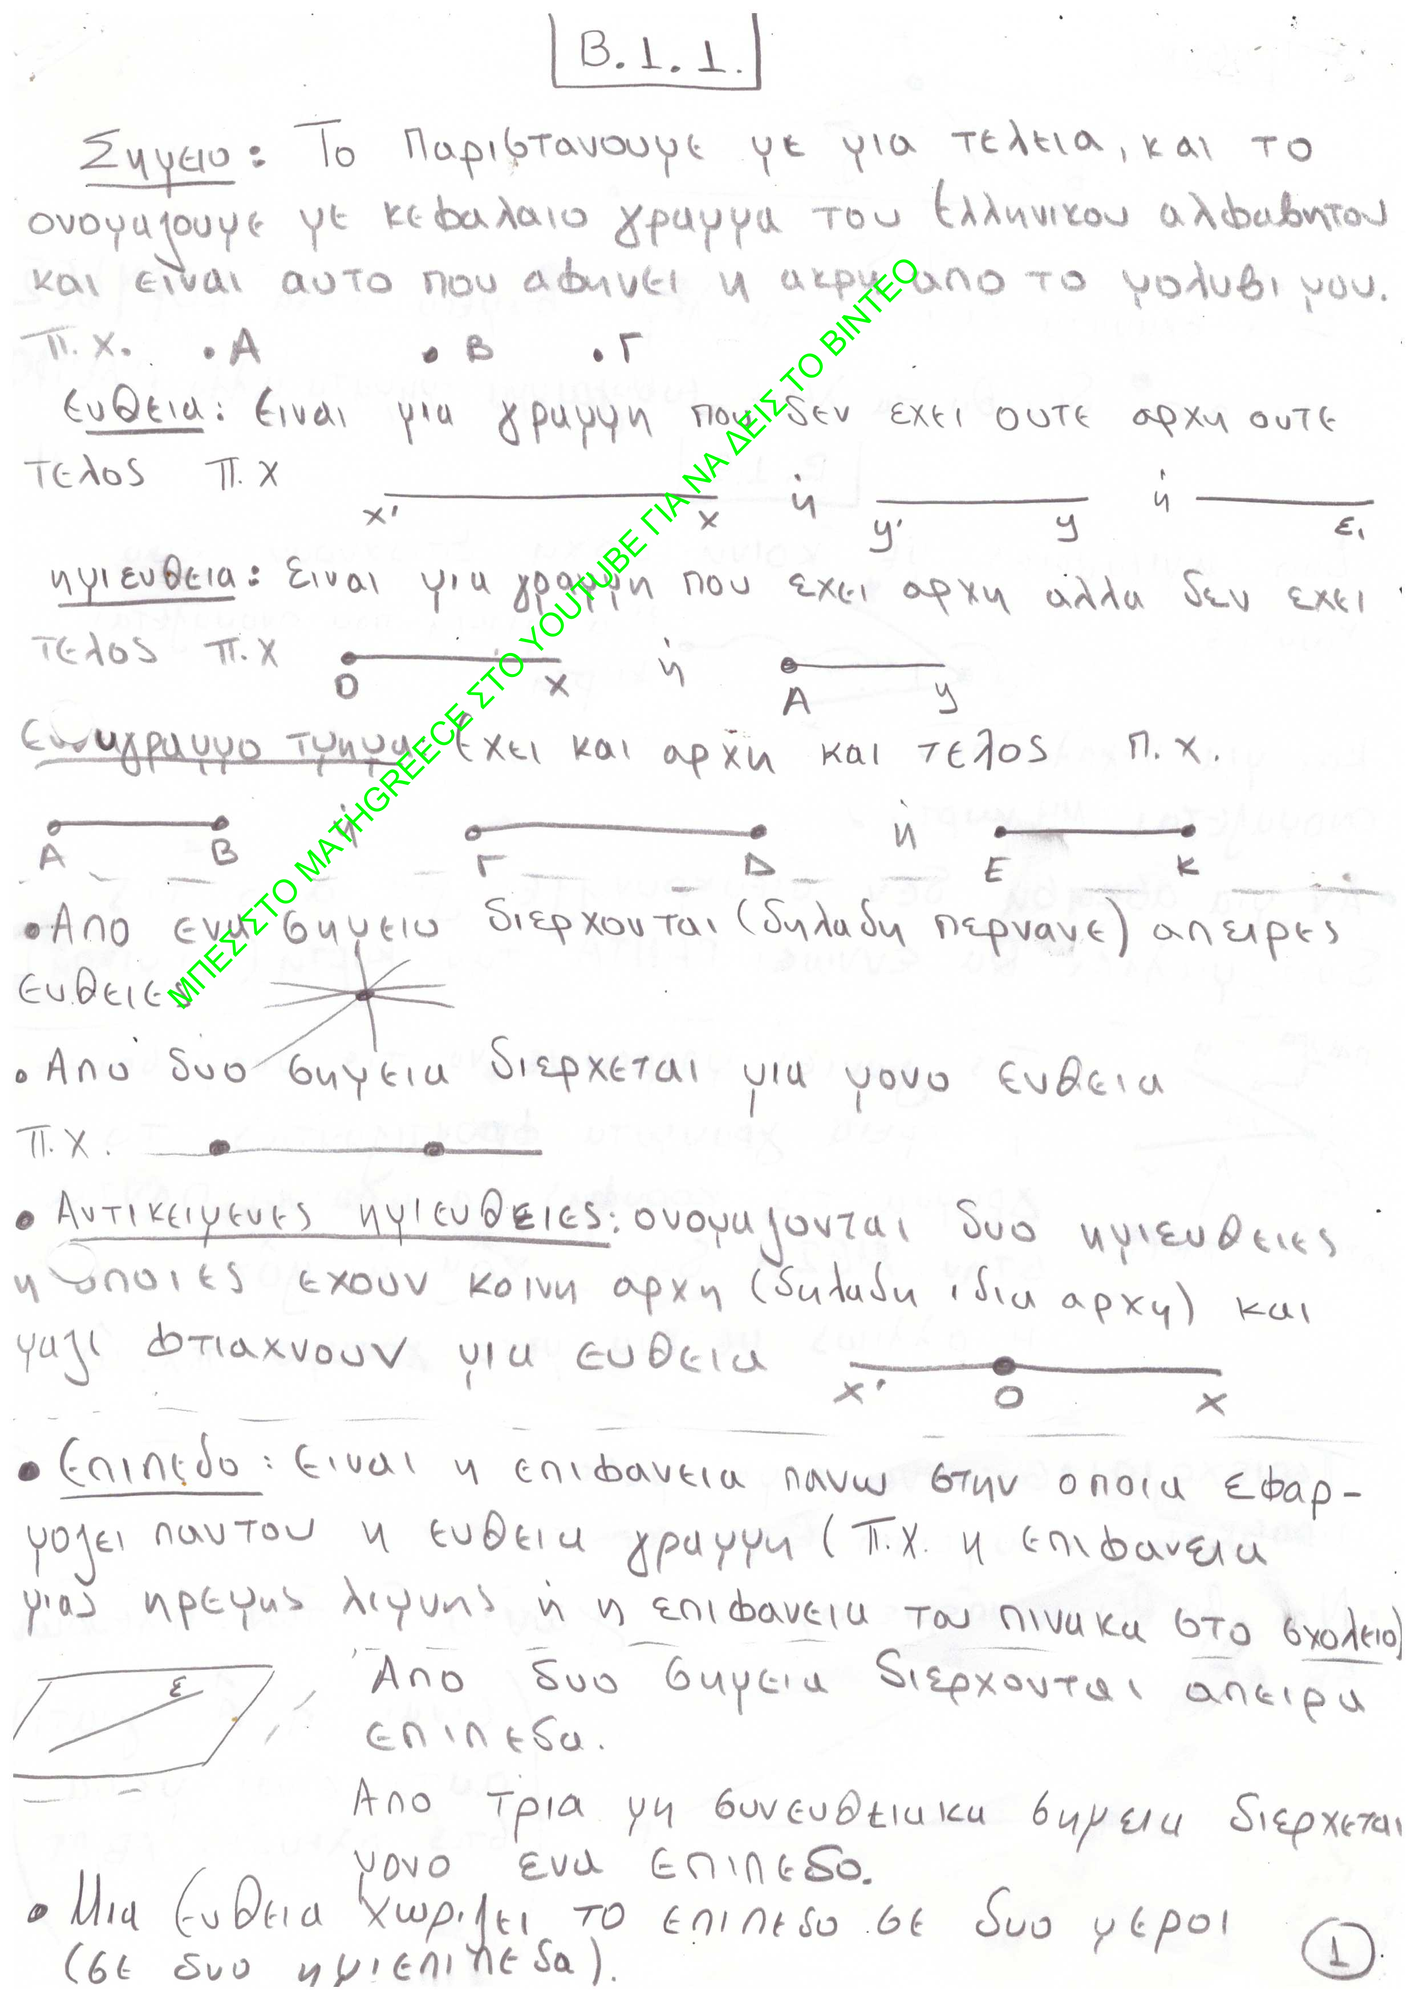 Β.1.1.
Σημειο: Το Παριστανουμε με μια τελεια, και το
ονομαζουμε με κεφαλαιο γραμμα του Ελληνικου αλφαβητου
και ειναι αυτο που αφηνει η ακρη απο το μολυβι μου.
Π.Χ. •Α •Β •Γ
Ευθεια: Ειναι μια γραμμη που δεν εχει ουτε αρχη ουτε
τελος Π.Χ
x' x ή y' y ή ε₁
ημιευθεια: Ειναι μια γραμμη που εχει αρχη αλλα δεν εχει
τελος Π.Χ
Ο x ή Α y
Ευθυγραμμο τμημα: Εχει και αρχη και τελος Π.Χ.
Α Β ή Γ Δ ή Ε Κ
•Απο ενα σημειο διερχονται (δηλαδη περνανε) απειρες
ευθειες
•Από δυο σημεια διερχεται μια μονο ευθεια
Π.Χ.
• Αντικειμενες ημιευθειες: ονομαζονται δυο ημιευθειες
η οποιες εχουν κοινη αρχη (δηλαδη ιδια αρχη) και
μαζι φτιαχνουν μια ευθεια
x' Ο x
• Επιπεδο: Ειναι η επιφανεια πανω στην οποια εφαρ-
μοζει παντου η ευθεια γραμμη (Π.Χ. η επιφανεια
μιας ηρεμης λιμνης ή η επιφανεια του πινακα στο σχολειο)
ε
Απο δυο σημεια διερχονται απειρα
επιπεδα.
Απο τρια μη συνευθειακα σημεια διερχεται
μονο ενα επιπεδο.
• Μια Ευθεια χωριζει το επιπεδο σε δυο μεροι
(σε δυο ημιεπιπεδα).
1
ΜΠΕΣ ΣΤΟ MATHGREECE ΣΤΟ YOUTUBE ΓΙΑ ΝΑ ΔΕΙΣ ΤΟ ΒΙΝΤΕΟ